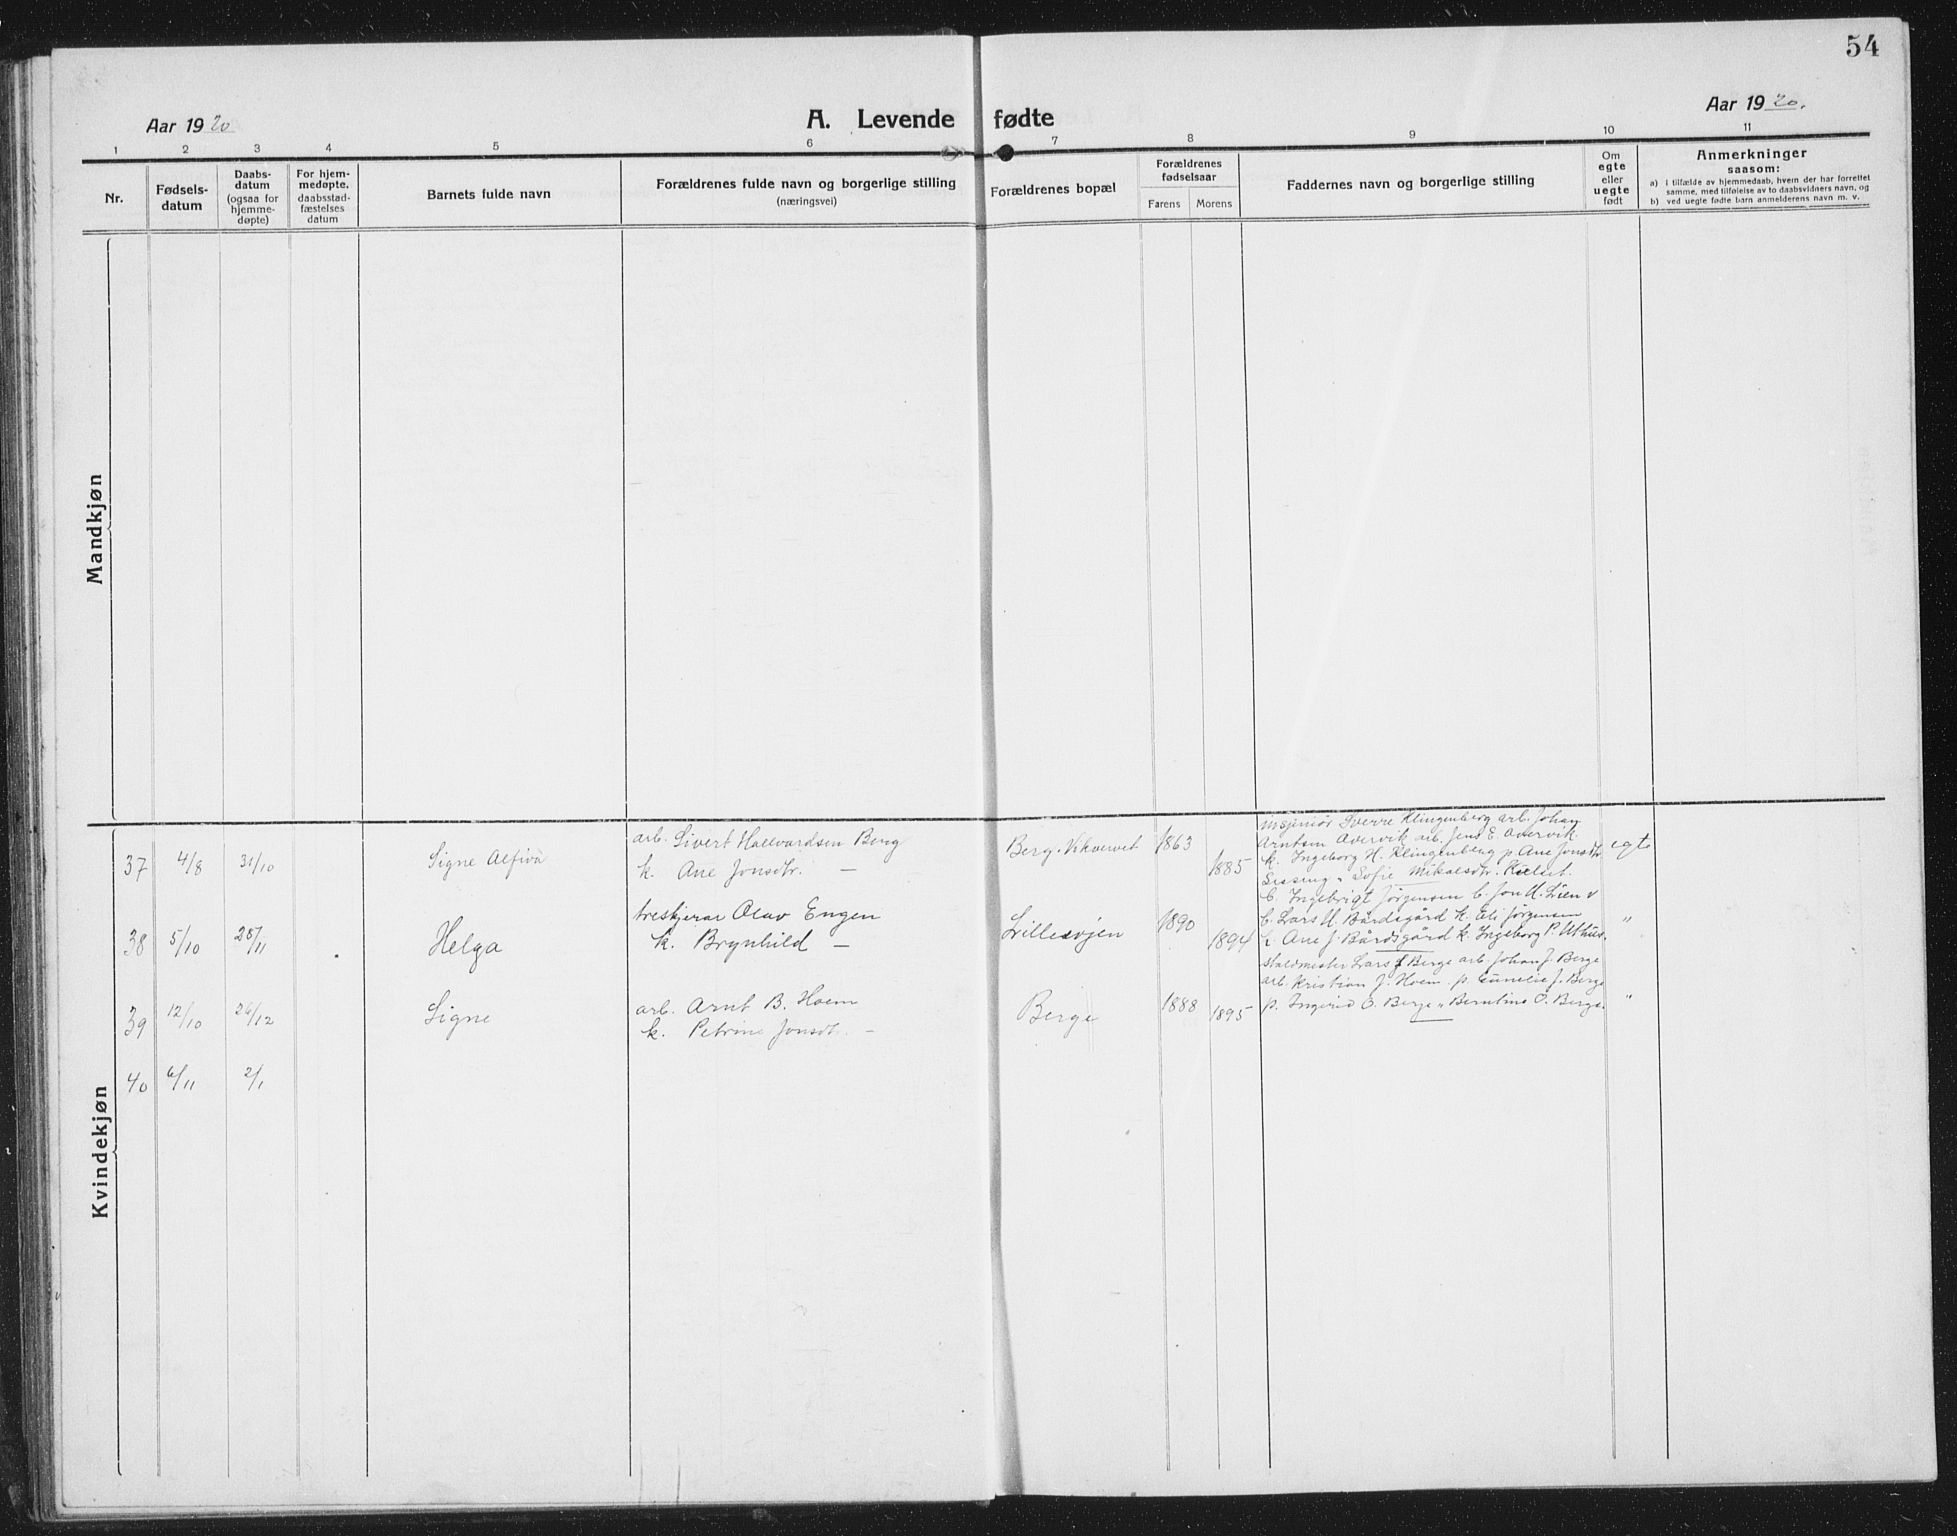 54
Aar 1920
A. Levende fødte
Aar 1920.
1 2 3 4 5 6 7 8 9 10 11
Nr.
Fødsels-
datum
Daabs-
datum
(ogsaa for
hjemme-
døpte)
For hjem-
medøpte,
daabsstad-
fæstelses
datum
Barnets fulde navn
Forældrenes fulde navn og borgerlige stilling
(næringsvei)
Forældrenes bopæl
Forældrenes
fødselsaar
Farens
Morens
Faddernes navn og borgerlige stilling
Om
egte
eller
uegte
født
Anmerkninger
saasom:
a) i tilfælde av hjemmedaab, hvem der har forrettet
samme, med tilføielse av to daabsvidners navn, og
b) ved uegte fødte barn anmelderens navn m. v.
Mandkjøn
Kvindekjøn
37 4/8 31/10 Signe Alfiva
arb. Sivert Hallvardsen Berg
k. Ane Jonsdtr. —
Berg. Vikvervet 1863 1885
Sverre Klingenberg arb. Johan
Arntsen Avervik arb. Jens E. Avervik
k. Ingeborg H. Klingenberg p. Ane Jonsdtr
" Sofie Mikalsdtr.
egte
38 5/10 28/11 Helga
treskjærer Olav Engen
k. Brynhild —
Lillesvjen 1890 1894
C. Ingebrigt Jørgensen C. Jon U. Lien
C. Lars U. Bårdsgård k. Eli Jørgensen
k. Ane J. Bårdsgård k. Ingeborg P. Uthus.
"
39 12/10 26/12 Signe
arb. Arnt B. Hoem
k. Petrine Jonsdtr. —
Berge 1888 1895
staldmester Lars J Berge arb. Johan J. Berge
arb. Kristian J. Hoem p. J. Berge
p. Ingerid O. Berge " Berntine O. Berge.
"
40 6/11 2/1